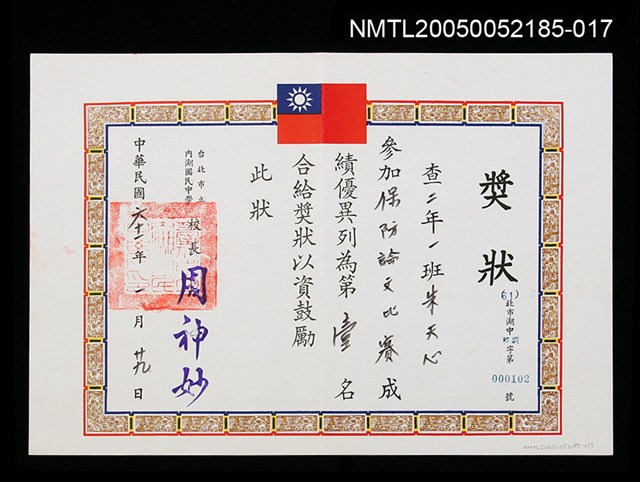 NMTL20050052185-017
獎狀
(61)北市湖中訓字第000102號
查二年一班朱天心
參加保防論文比賽成
績優異列為第壹名
合給獎狀以資鼓勵
此狀
台北市立
內湖國民中學
校長周神妙
中華民國六十一年一月廿九日
NMTL20050052185-017